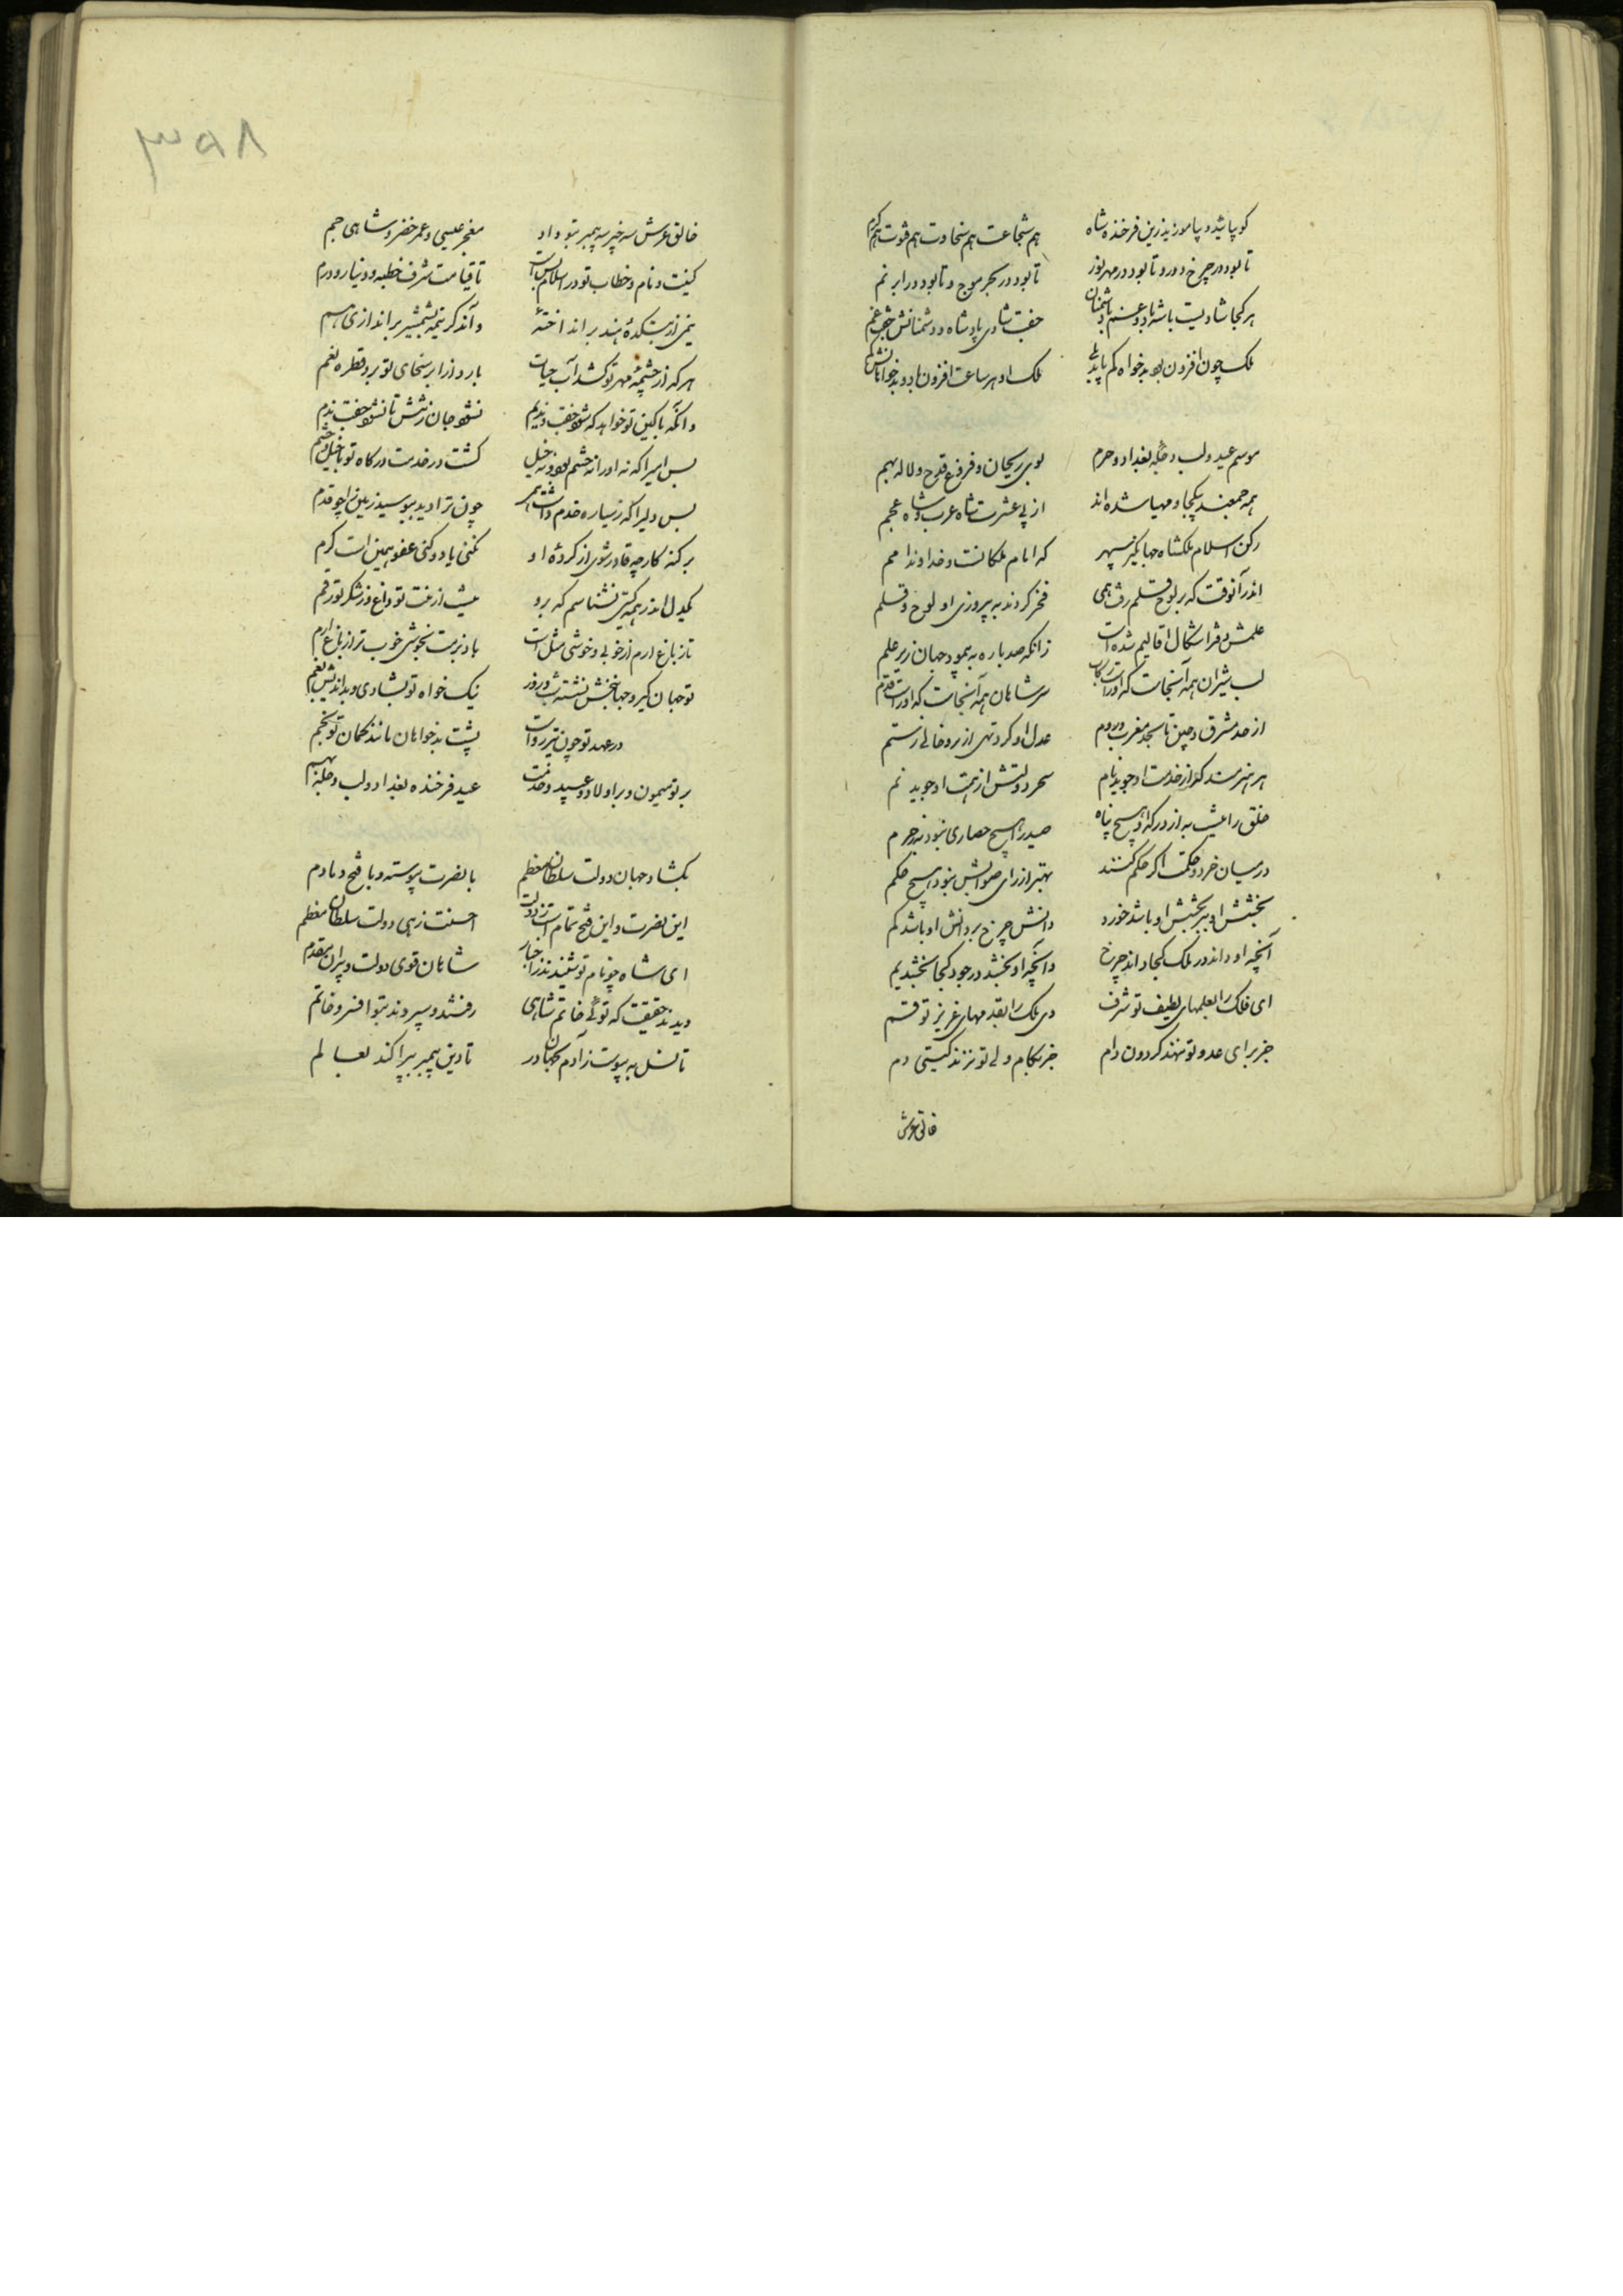 کو پایید و پاموزید زین فرخنده شاه
هم شجاعت هم سخاوت هم قوت هم کرم
تا بود در چرخ دور و تا بود در مهر نور
تا بود در بحر موج و تا بود در ابر نم
هر کجا شادیست باشد با و غم با دشمنان
جفت شادی پادشاه و دشمنانش جفت غم
ملک چون افزون بود بدخواه کم باید
ملک او هر ساعت افزون باد و بدخواهانش کم
موسم عید و لب دجله بغداد و حرم
بوی ریحان و فروغ قدح و لاله بهم
همه جمعند بیکجا و مهیا شده اند
از پی عشرت شاه عرب و شاه عجم
رکن اسلام ملکشاه جهانگیر سپهر
که امام ملکانست و خداوند امم
اندر آنوقت که بر لوح قلم رفت همی
فخر کردند به پیروزی او لوح و قلم
علمش دفتر اشکال اقالیم شده است
زانکه صد باره به پیمود جهان زیر علم
لب شیران همه آنجاست که او راست رکاب
سر شاهان همه آنجاست که او راست قدم
از حد مشرق و چین تا بحد مغرب و روم
عدل او کرد تهی از بد و خالی ز ستم
هر هنرمند کو از خدمت او جوید نام
بحر دولتش از همت او جوید نم
خلق را نیست به از درکه او هیچ پناه
صید را هیچ حصاری نبود به ز حرم
در میان خرد و حکمت اگر حکم کنند
بهتر از رای صوابش نبود هیچ حکم
بخشش ابر بر بخشش او باشد خورد
دانش چرخ بر دانش او باشد کم
آنچه او داند در ملک کجا داند چرخ
وآنچه او بخشد در جود کجا بخشد یم
ای فلک را بعلمهای لطیف تو شرف
وی ملک را بقدمهای عزیز تو قسم
جز برای عدو تو ننهد گردون دام
جز بکام ولی تو نزند گیتی دم
خالق عرش
۳۹۸
خالق عرش سه چیز سه پیمبر بتو داد
معجز عیسی و عمر خضر و شاهی جم
کنیت و نام و خطاب تو در اسلام بس است
تا قیامت شرف خطبه و دینار و درم
نیمی از بتکده هند بر انداخته
وآن دگر نیمه بشمشیر بر اندازی هم
هر که از چشمه مهر تو کشد آب حیات
بارد از ابر سخای تو برو قطره نعم
وآنکه با کین تو خواهد که شود جفت و ندیم
نشود جان ز تنش تا نشود جفت ندم
بس امیرا که نه او را نه حشم بود و نه خیل
گشت در خدمت درگاه تو با خیل و حشم
بس دلیرا که ز سیاره خدم داشت
چون ترا دید ببوسید زمین را چو قدم
بر گنه کار چه قادر شوی از کرده او
نکنی یاد و کنی عفو همین است کرم
یکدل اندر همه گیتی نشناسم که برو
نیست از منت تو داغ و ز شکر تو رقم
تاز باغ ارم از خوبی و خوشی مثل است
باد بزمت بخوشی خوب تر از باغ ارم
تو جهان گیر و جهان بخش نشسته شب و روز
نیک خواه تو بشادی و بد اندیش بغم
در عهد تو چون تیر رو است
پشت بدخواهان مانند کمان تو بخم
بر تو میمون و بر اولاد و عبید و خدمت
عید فرخنده بغداد و لب دجله بهم
بگشاد جهان دولت سلطان معظم
با نصرت پیوسته و با فتح دمادم
این نصرت و این فتح تمام است ز دولت
احسنت زهی دولت سلطان معظم
ای شاه چو نام تو شنیدند در اخبار
شاهان قوی دولت و پیران مقدم
دیدند حقیقت که تویی خاتم شاهی
رفتند و سپردند بتو افسر و خاتم
تا نسل به پیوست ز آدم بجهان در
تا دین پیمبر بپراکند بعالم